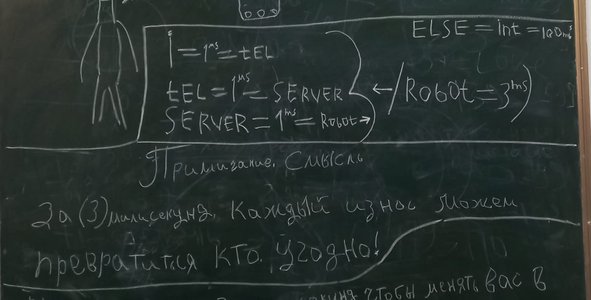 ELSE = int = 100ms
i = 1ms = tEL
tEL = 1ms = SERVER
SERVER = 1ms = Robot →
← / Robot = 3ms )
Примигание. Смысль
За (3) милисекунд, каждый износ можем
превратится кто угодно!
чтобы менять вас в